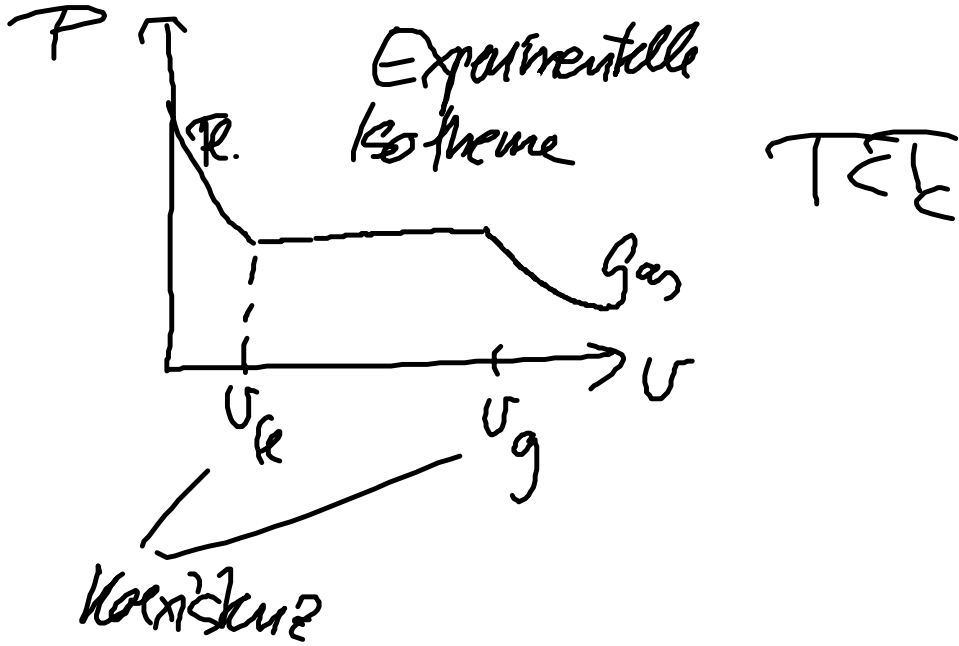 P
Experimentelle
Isotherme
Fl.
T<T_c
Gas
v
v_fl
v_g
Koexistenz